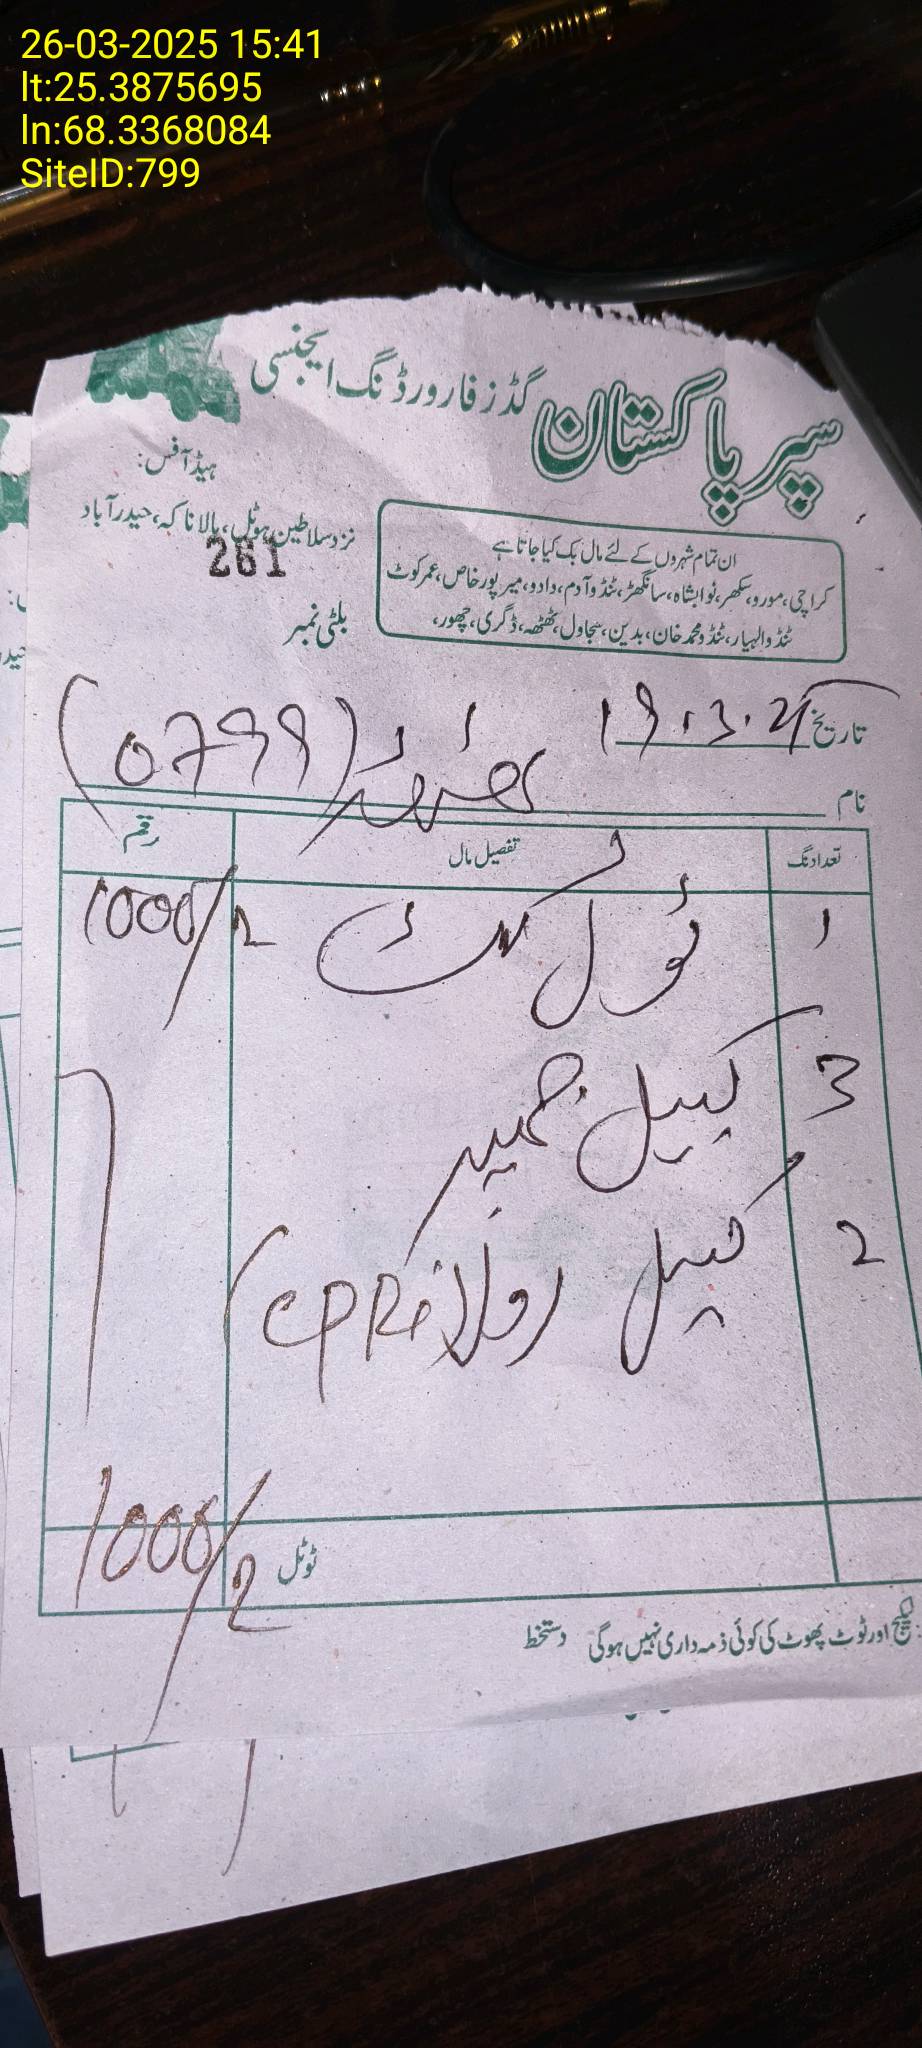 26-03-2025 15:41
lt:25.3875695
ln:68.3368084
SiteID:799
سپر پاکستان گڈز فارورڈنگ ایجنسی
ہیڈ آفس:
نزد سلاطین ہوٹل، ہالا ناکہ، حیدرآباد
ان تمام شہروں کے لئے مال بک کیا جاتا ہے
کراچی، مورو، سکھر، نوابشاہ، سانگھڑ، ٹنڈو آدم، دادو، میرپور خاص، عمرکوٹ
ٹنڈو الہیار، ٹنڈو محمد خان، بدین، سجاول، ٹھٹھہ، ڈگری، چھور،
261
بلٹی نمبر
تاریخ 19.3.25
نام (0799)
تعداد نگ تفصیل مال رقم
1 ٹول کٹ 1000/2
3 کیبل جمپر
2 کیبل رولا (CPRi
ٹوٹل 1000/2
لیکیج اور ٹوٹ پھوٹ کی کوئی ذمہ داری نہیں ہوگی دستخط